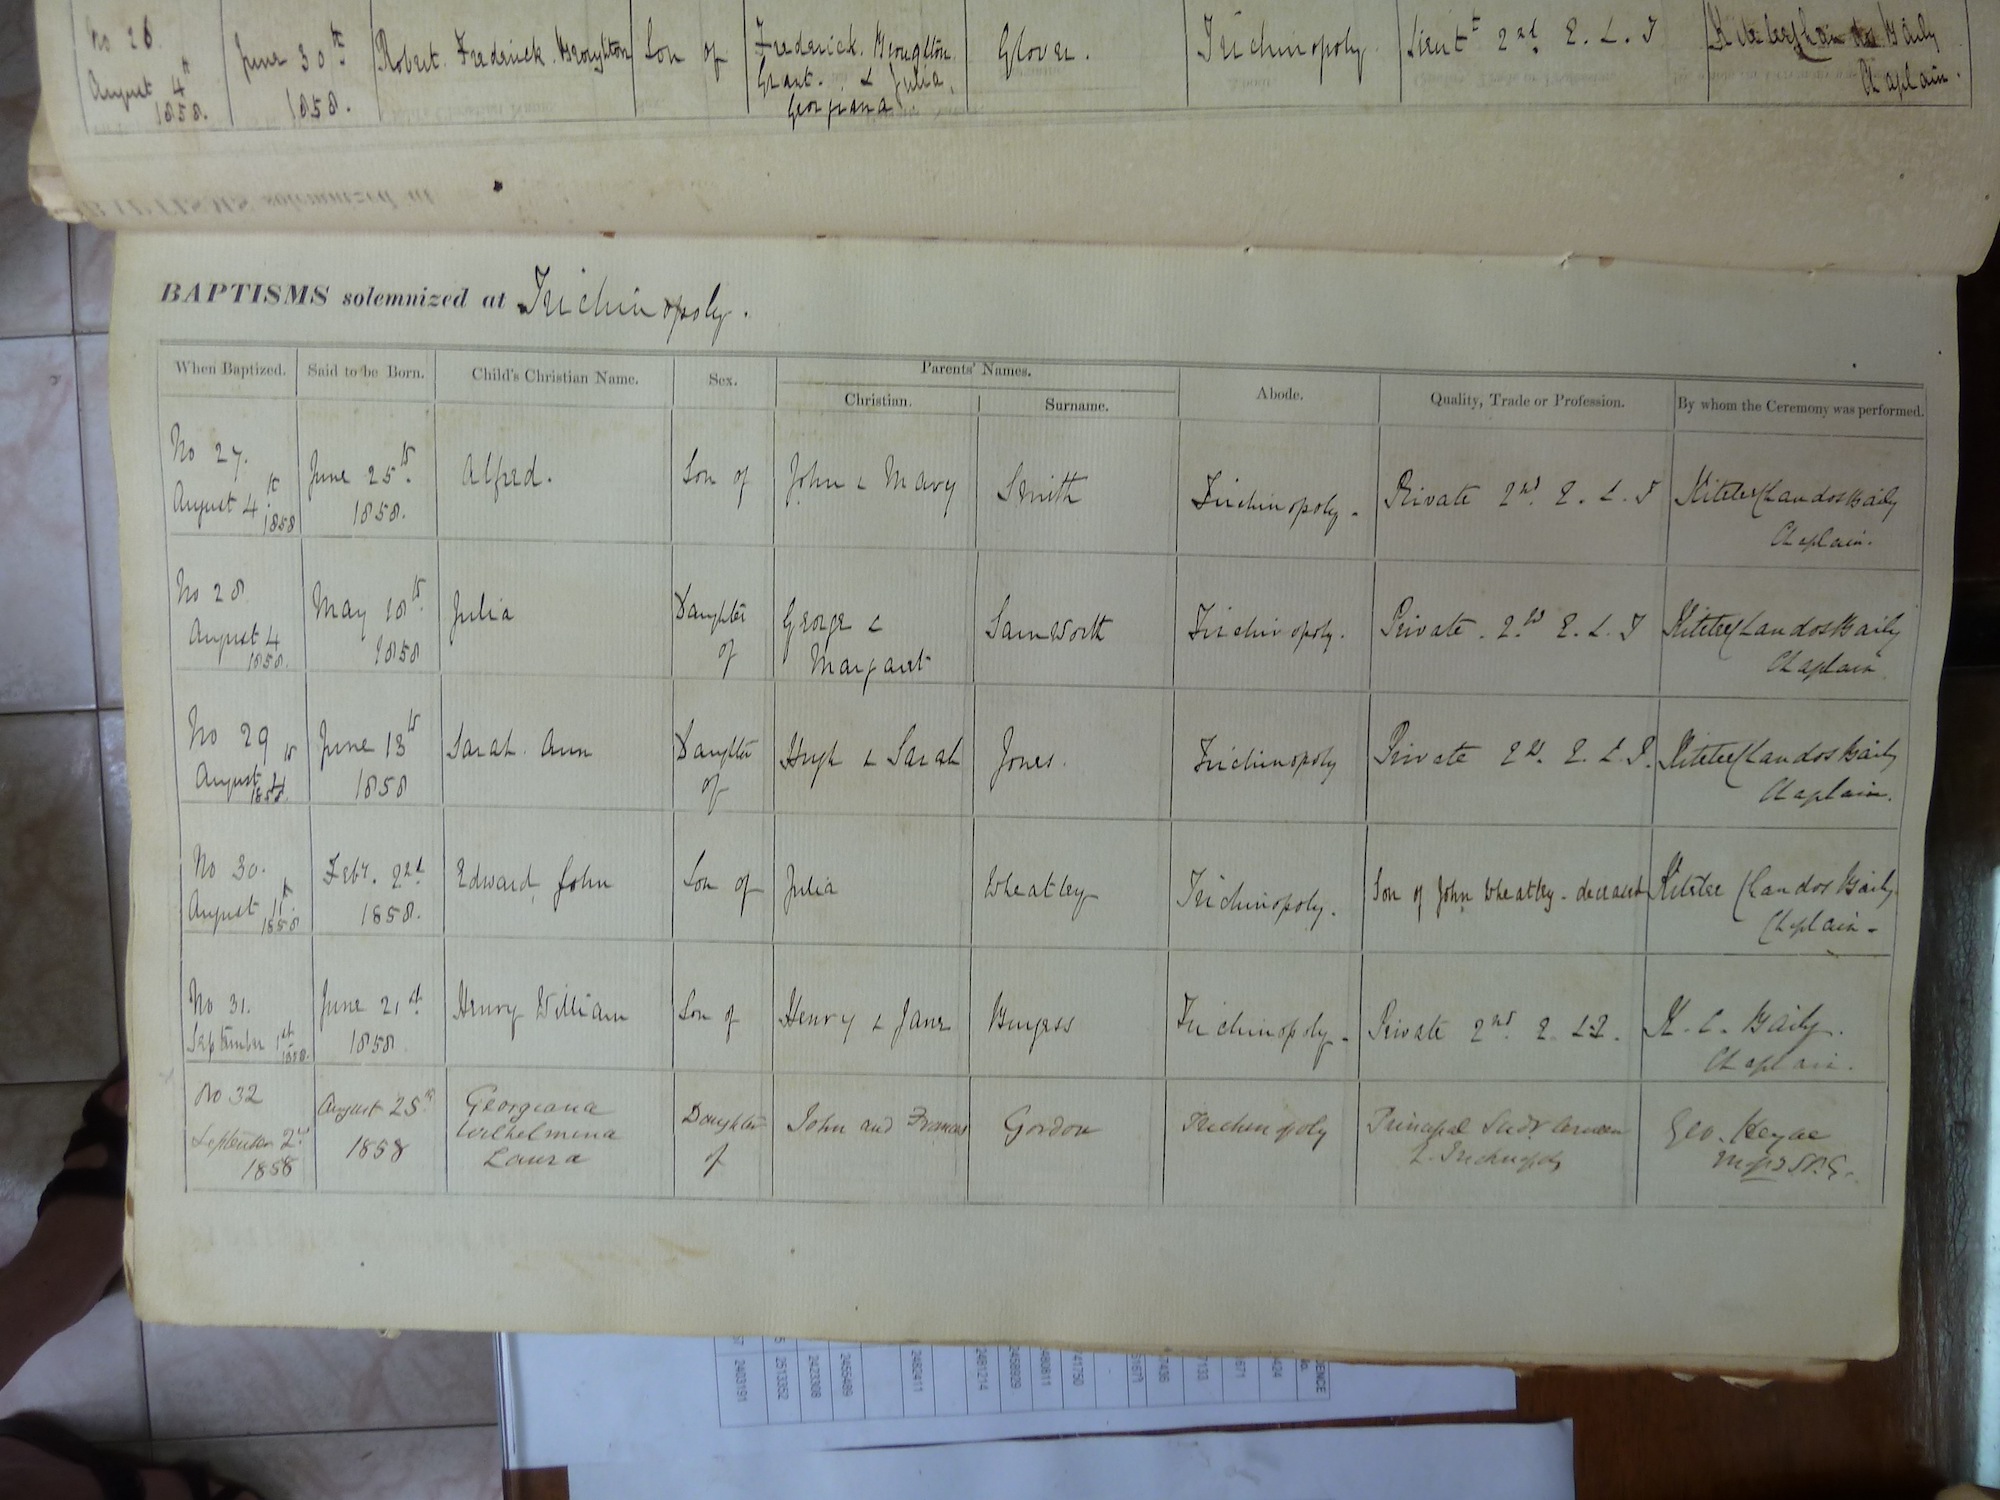 No 26. August 4th 1858. June 30th 1858. Robert Frederick Broughton Son of Frederick Broughton Grant & Julia Georgiana Glover. Trichinopoly. Lieutt 2nd E. L. I Baily Chaplain.
BAPTISMS solemnized at Trichinopoly.
When Baptized. Said to be Born. Child's Christian Name. Sex. Parents' Names. Christian. Surname. Abode. Quality, Trade or Profession. By whom the Ceremony was performed.
No 27. August 4th 1858 June 25th 1858. Alfred. Son of John & Mary Smith Trichinopoly. Private 2nd E. L. I Kitelee Chandos Baily Chaplain.
No 28 August 4 1858. May 18th 1858 Julia Daughter of George & Margaret Samworth Trichinopoly. Private 2nd E. L. I Kitelee Chandos Baily Chaplain
No 29 August 4th 1858. June 13th 1858 Sarah Ann Daughter of Hugh & Sarah Jones. Trichinopoly Private 2nd E. L. I. Kitelee Chandos Baily Chaplain.
No 30. August 11th 1858 Feby. 2nd 1858. Edward John Son of Julia Wheatley Trichinopoly. Son of John Wheatley - deceased Kitelee Chandos Baily Chaplain -
No 31. September 1st 1858. June 21st 1858 Henry William Son of Henry & Jane Burgess Trichinopoly - Private 2nd E. L.I. K. C. Baily. Chaplain.
No 32 September 2nd 1858 August 25th 1858 Georgiana Wilhelmina Laura Daughter of John and Frances Gordon Trichinopoly Principal Sudr Ameen Trichinopoly Geo. Heyne S.P.G.
2403191
2513352
2423308
2455489
2482411
2481214
2458929
480611
41750
7436
7133
671
424
No.
ENCE